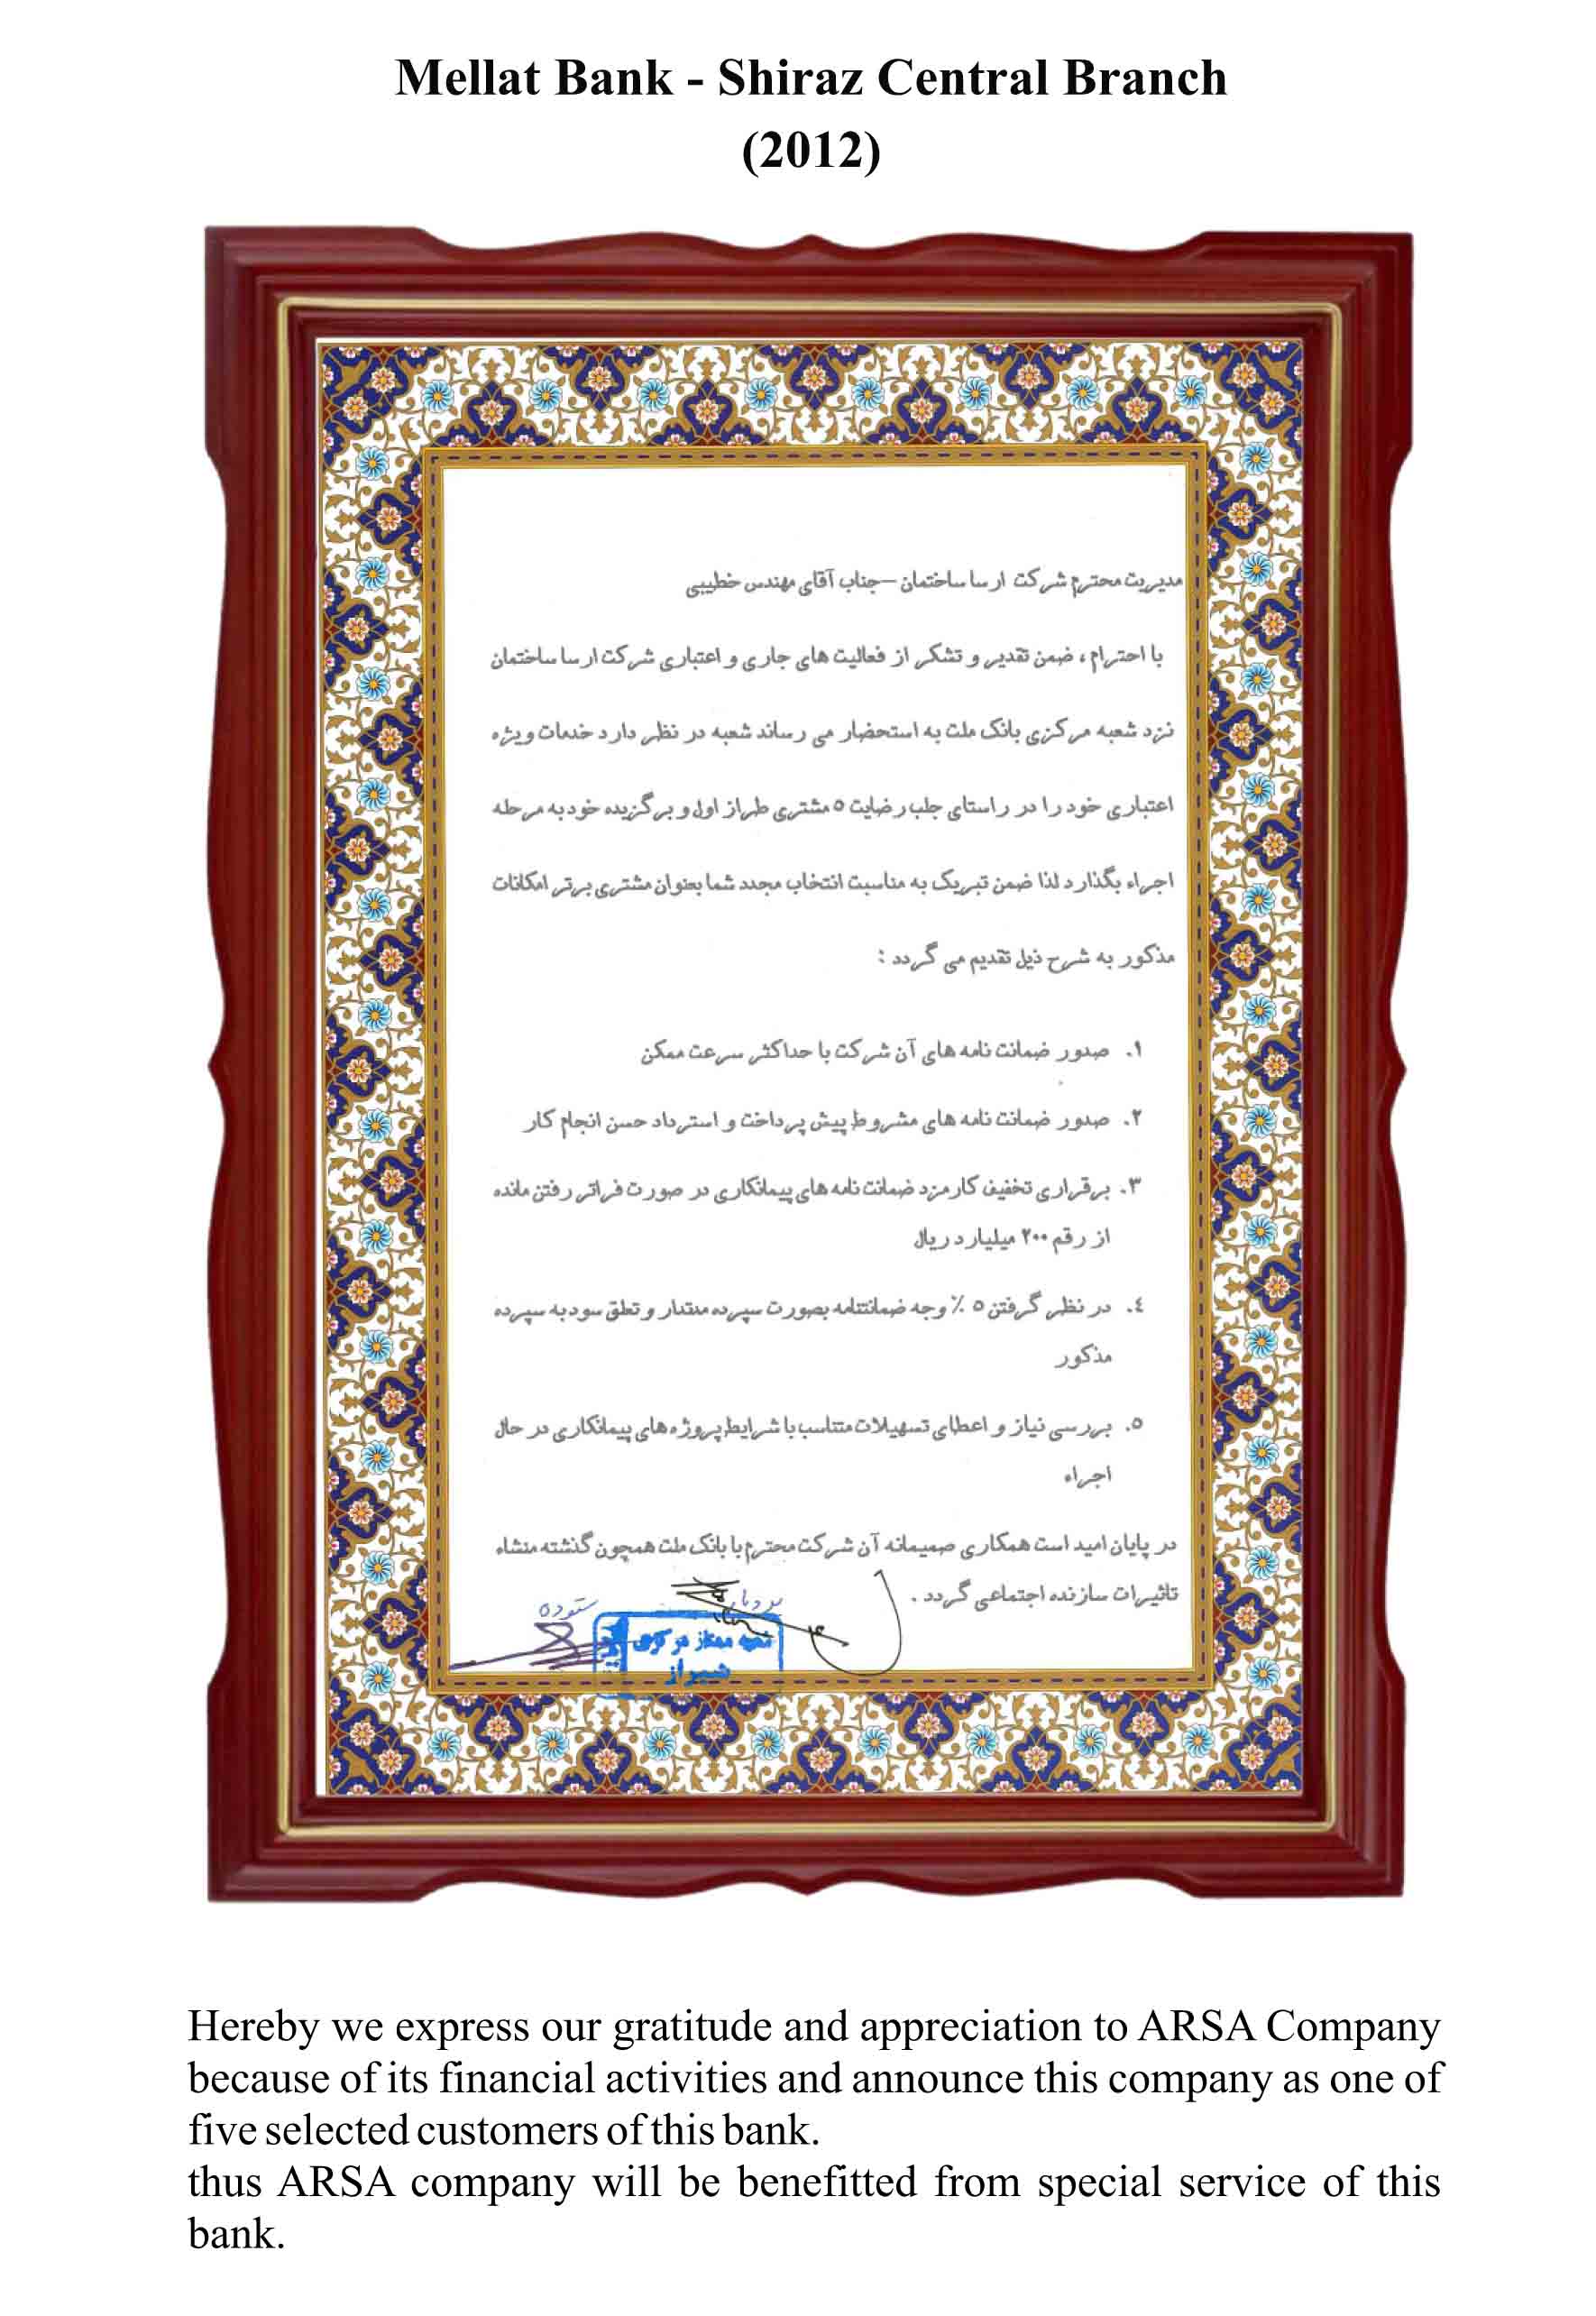 Mellat Bank - Shiraz Central Branch
(2012)
مدیریت محترم شرکت ارسا ساختمان – جناب آقای مهندس خطیبی
با احترام ، ضمن تقدیر و تشکر از فعالیت های جاری و اعتباری شرکت ارسا ساختمان
نزد شعبه مرکزی بانک ملت به استحضار می رساند شعبه در نظر دارد خدمات ویژه
اعتباری خود را در راستای جلب رضایت ۵ مشتری طراز اول و برگزیده خود به مرحله
اجراء بگذارد لذا ضمن تبریک به مناسبت انتخاب مجدد شما بعنوان مشتری برتر امکانات
مذکور به شرح ذیل تقدیم می گردد :
۱. صدور ضمانت نامه های آن شرکت با حداکثر سرعت ممکن
۲. صدور ضمانت نامه های مشروط پیش پرداخت و استرداد حسن انجام کار
۳. برقراری تخفیف کارمزد ضمانت نامه های پیمانکاری در صورت فراتر رفتن مانده
از رقم ۲۰۰ میلیارد ریال
٤. در نظر گرفتن ۵ ٪ وجه ضمانتنامه بصورت سپرده مدتدار و تعلق سود به سپرده
مذکور
۵. بررسی نیاز و اعطای تسهیلات متناسب با شرایط پروژه های پیمانکاری در حال
اجراء
در پایان امید است همکاری صمیمانه آن شرکت محترم با بانک ملت همچون گذشته منشاء
تاثیرات سازنده اجتماعی گردد .
ستوده
شعبه ممتاز مرکزی
شیراز
Hereby we express our gratitude and appreciation to ARSA Company
because of its financial activities and announce this company as one of
five selected customers of this bank.
thus ARSA company will be benefitted from special service of this
bank.